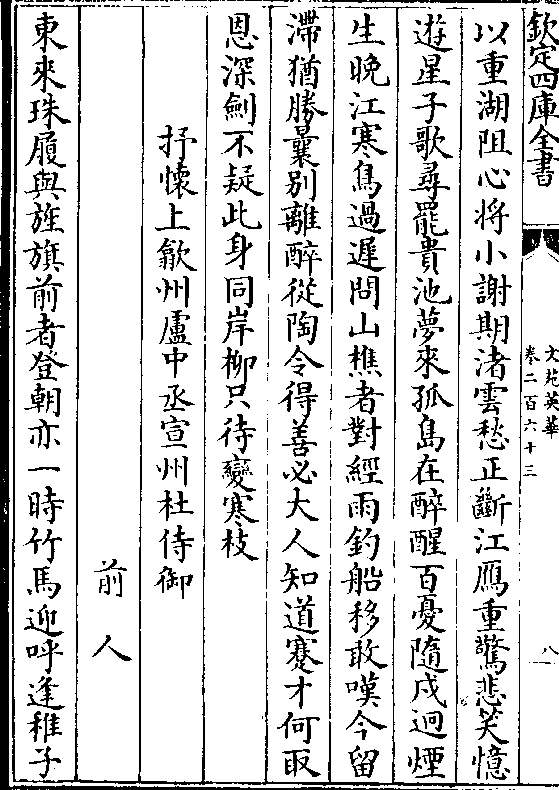 欽定四庫全書
文苑英華
卷二百六十三
八
以重湖阻心将小謝期渚雲愁正斷江鴈重驚悲笑憶
逰星子歌尋罷貴池夢來孤島在醉醒百憂隨戍迥煙
生晚江寒鳥過遲問山樵者對經雨釣船移敢嘆今留
滯猶勝曩别離醉從陶令得善必大人知道蹇才何取
恩深劍不疑此身同岸柳只待變寒枝
抒懷上歙州盧中丞宣州杜侍御
前人
東來珠履與旌旗前者登朝亦一時竹馬迎呼逢稚子